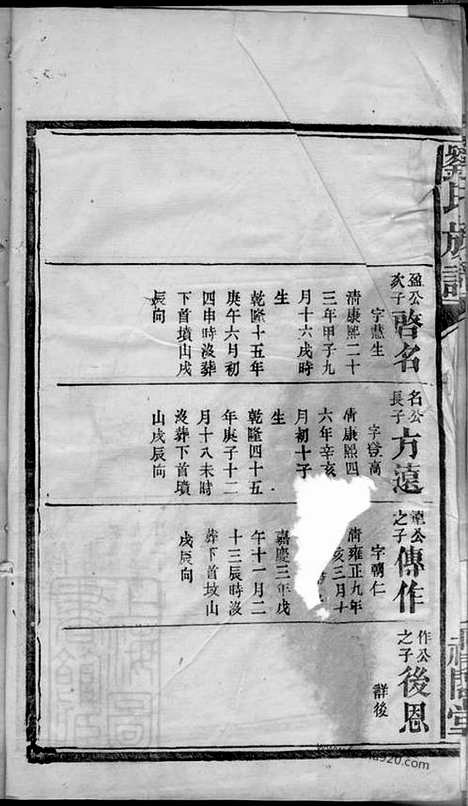 劉氏族譜
盈公
次子
啓名
字慧生
清康熙二十
三年甲子九
月十六戌時
生
乾隆十五年
庚午六月初
四申時沒葬
下首墳山戌
辰向
名公
長子
方遠
字登高
清康熙四
六年辛亥
月初十子
生
乾隆四十五
年庚子十二
月十八未時
沒葬下首墳
山戌辰向
遠公
之子
傳作
字朝仁
清雍正九年
亥三月十
嘉慶三年戊
午十一月二
十三辰時沒
葬下首坟山
戌辰向
作公
之子
後恩
詳後
閣堂
920.com